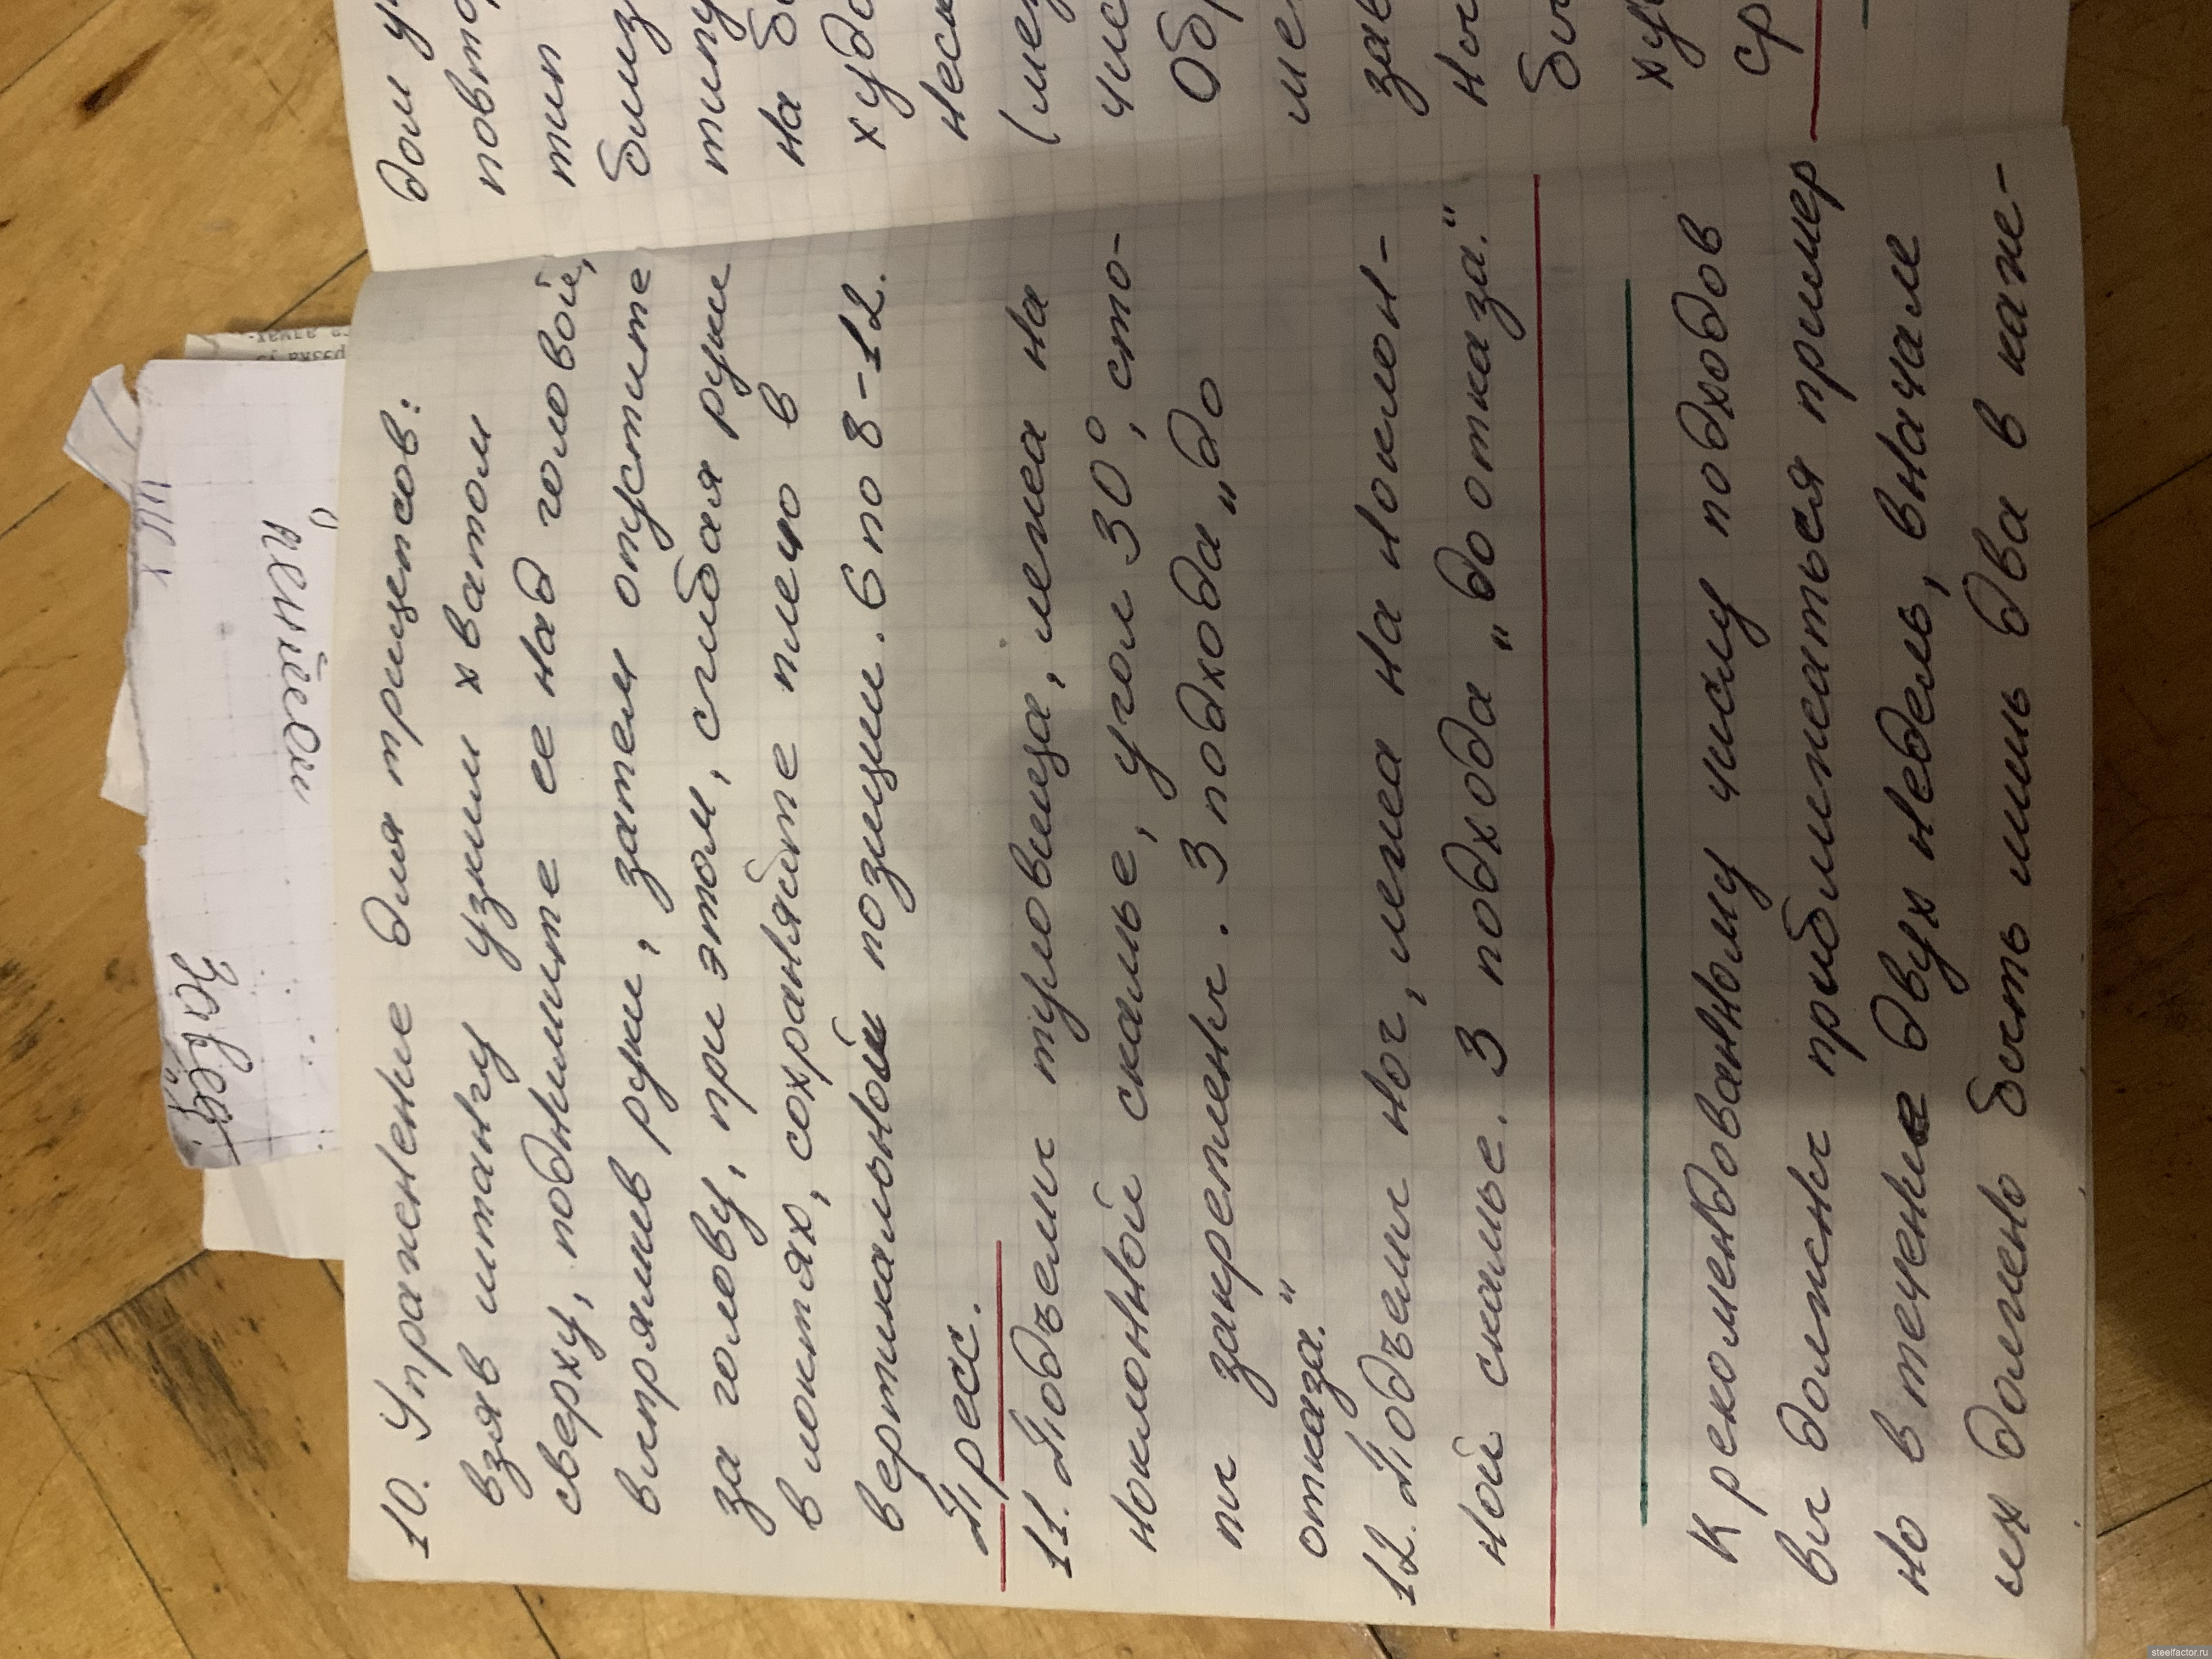 10. Упражнение для трицепсов:
взяв штангу узким хватом
сверху, поднимите ее над головой,
выпрямив руки, затем опустите
за голову, при этом, сгибая руки
в локтях, сохраняйте плечо в
вертикальной позиции. 6 по 8-12.
Пресс.
11. Подъемы туловища, лежа на
наклонной скамье, угол 30°, сто-
пы закреплены. 3 подхода „до
отказа."
12. Подъемы ног, лежа на наклон-
ной скамье. 3 подхода „до отказа."
К рекомендованному числу подходов
вы должны приближаться пример
но в течение двух недель, вначале
их должно быть лишь два в каж-
дом у
повто
тип
близ
типу
на б
худо
неск
(ме
чис
Обр
ме
зав
ны
бы
ху
ср
Завед.
steelfactor.ru